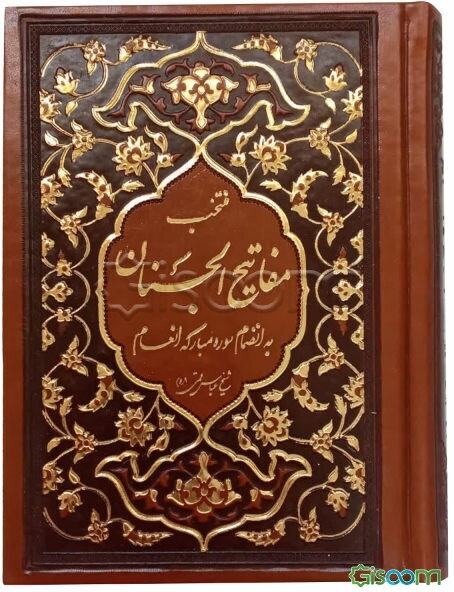 منتخب
مفاتیح الجنان
به انضمام سوره مبارکه انعام
شیخ عباس قمی (ره)
Giscom
Giscom